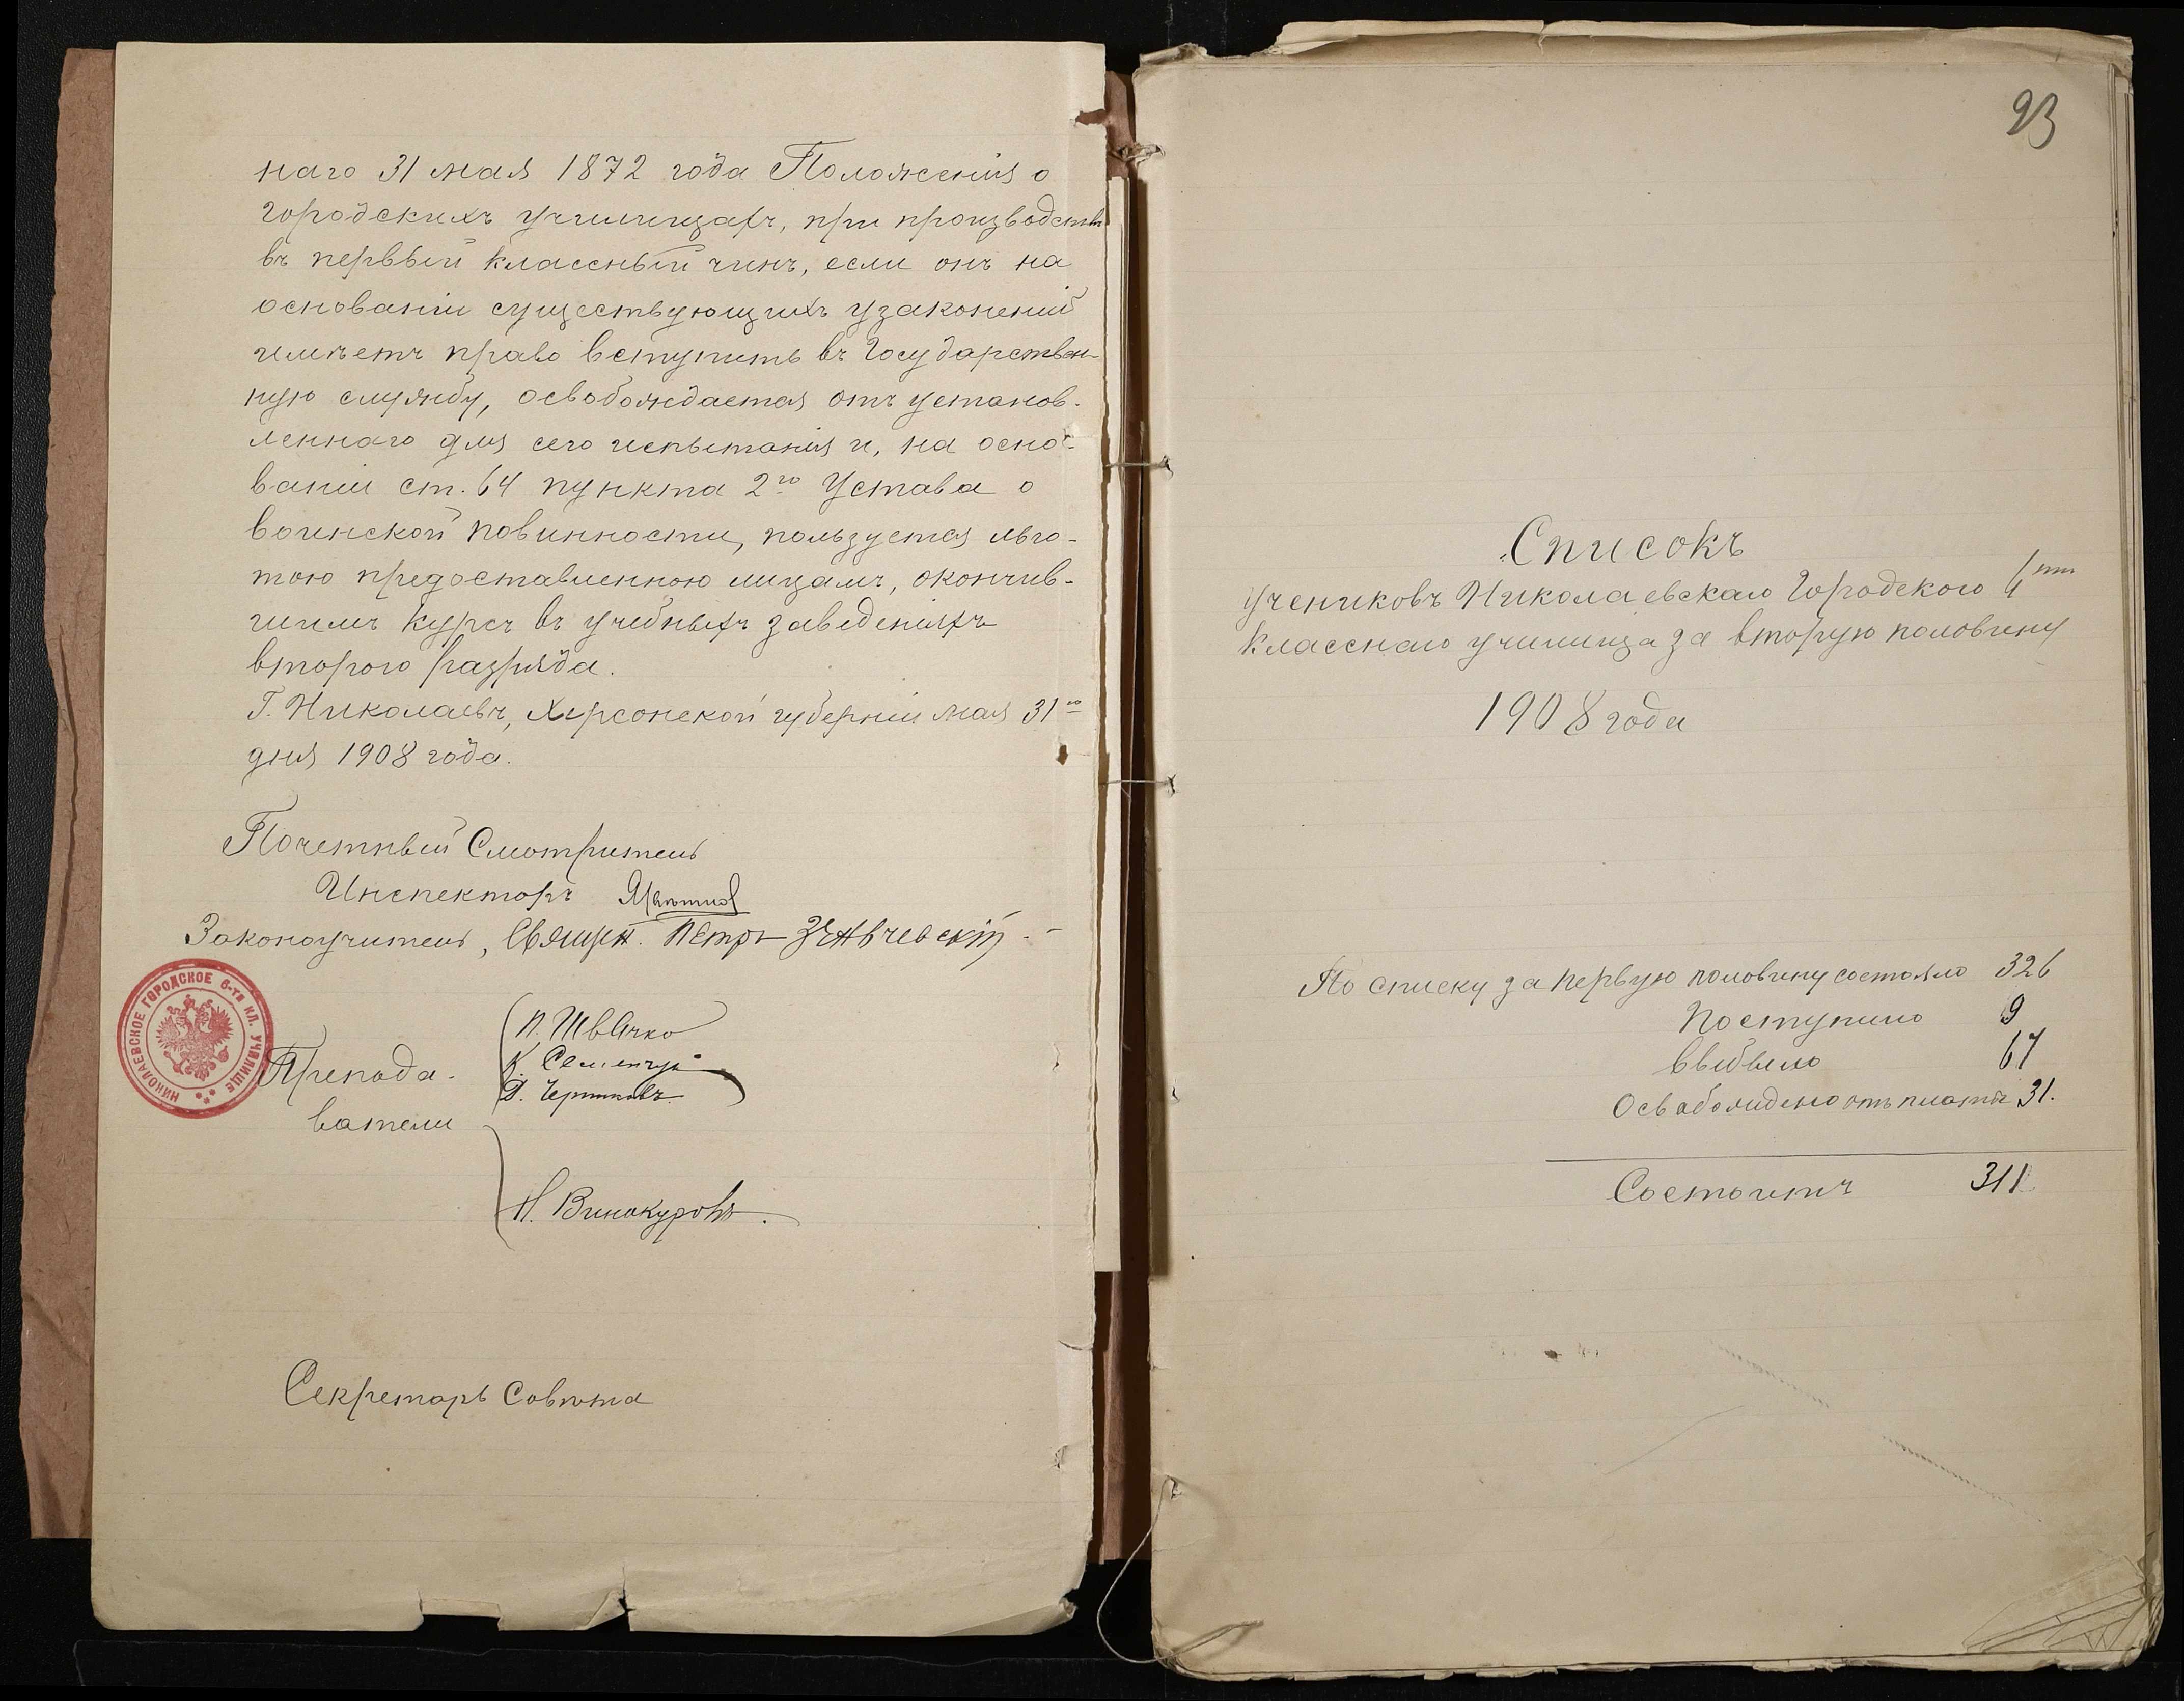 наго 31 мая 1872 года Положенія о
городскихъ училищахъ, при производствѣ
въ первый классный чинъ, если онъ на
основаніи существующихъ узаконеній
имѣетъ право вступить въ Государствен-
ную службу, освобождается отъ установ-
леннаго для сего испытанія и, на осно-
ваніи ст. 64 пункта 2го Устава о
воинской повинности, пользуется льго-
тою предоставленною лицамъ, окончив-
шимъ курсъ въ учебныхъ заведеніяхъ
второго разряда.
Г. Николаевъ, Херсонской губерніи мая 31го
дня 1908 года.
Почетный Смотритель
Инспекторъ
Законоучитель, Священ. Петръ
НИКОЛАЕВСКОЕ ГОРОДСКОЕ 6-ТИ КЛ. УЧИЛИЩЕ
Препода-
ватели
П. Швачко
К. Семенчук
Чертковъ
Н. Винокуровъ.
Секретарь Совѣта
93
Списокъ
учениковъ Николаевскаго Городского 6ти
класснаго училища за вторую половину
1908 года
По списку за первую половину состояло 326
Поступило 9
Выбыло 67
Освабождено отъ платы 31.
Состоитъ 311